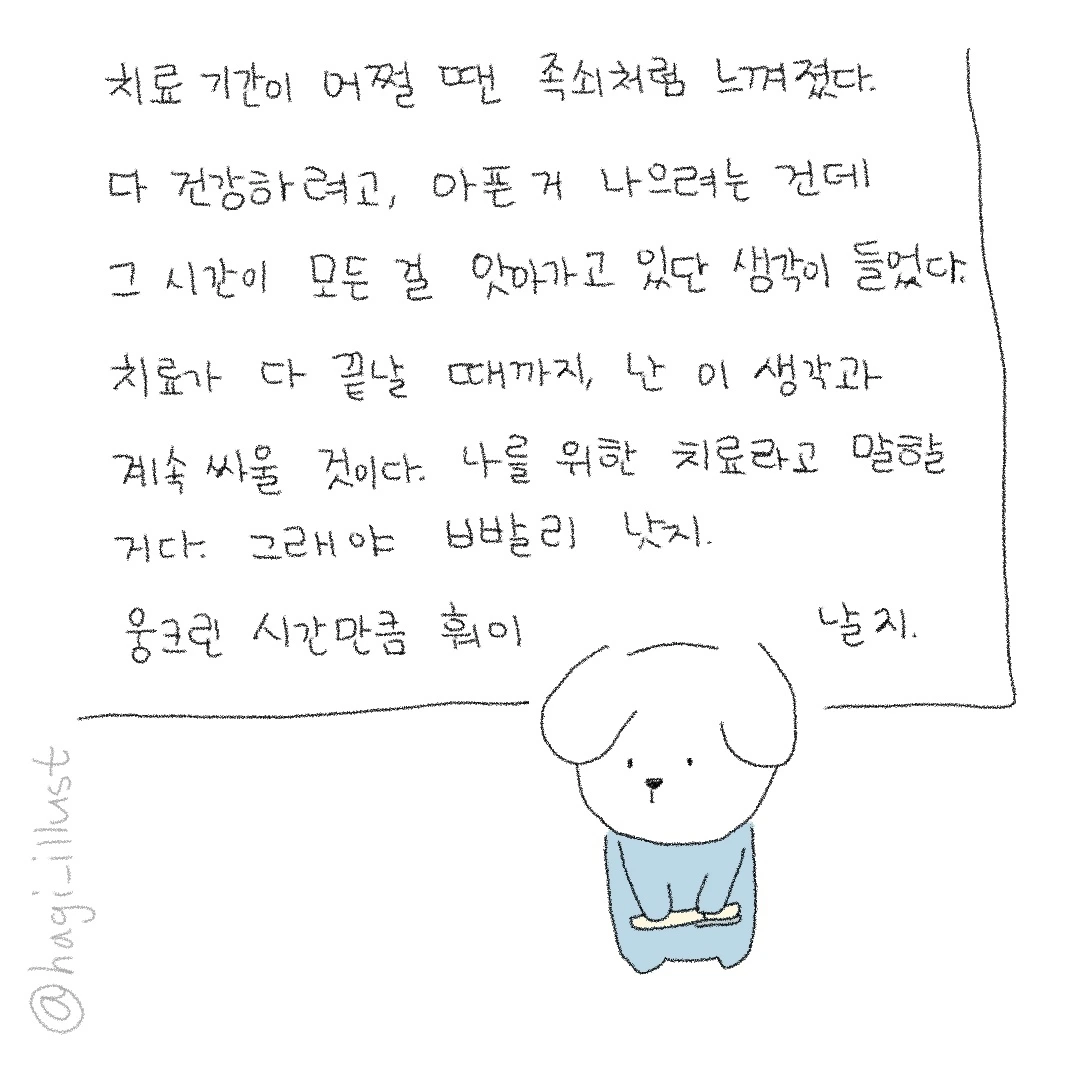 치료 기간이 어쩔 땐 족쇄처럼 느껴졌다.
다 건강하려고, 아픈 거 나으려는 건데
그 시간이 모든 걸 앗아가고 있단 생각이 들었다.
치료가 다 끝날 때까지, 난 이 생각과
계속 싸울 것이다. 나를 위한 치료라고 말할
거다. 그래야 빱빨리 낫지.
웅크린 시간만큼 훠이 날지.
@hagi_illust